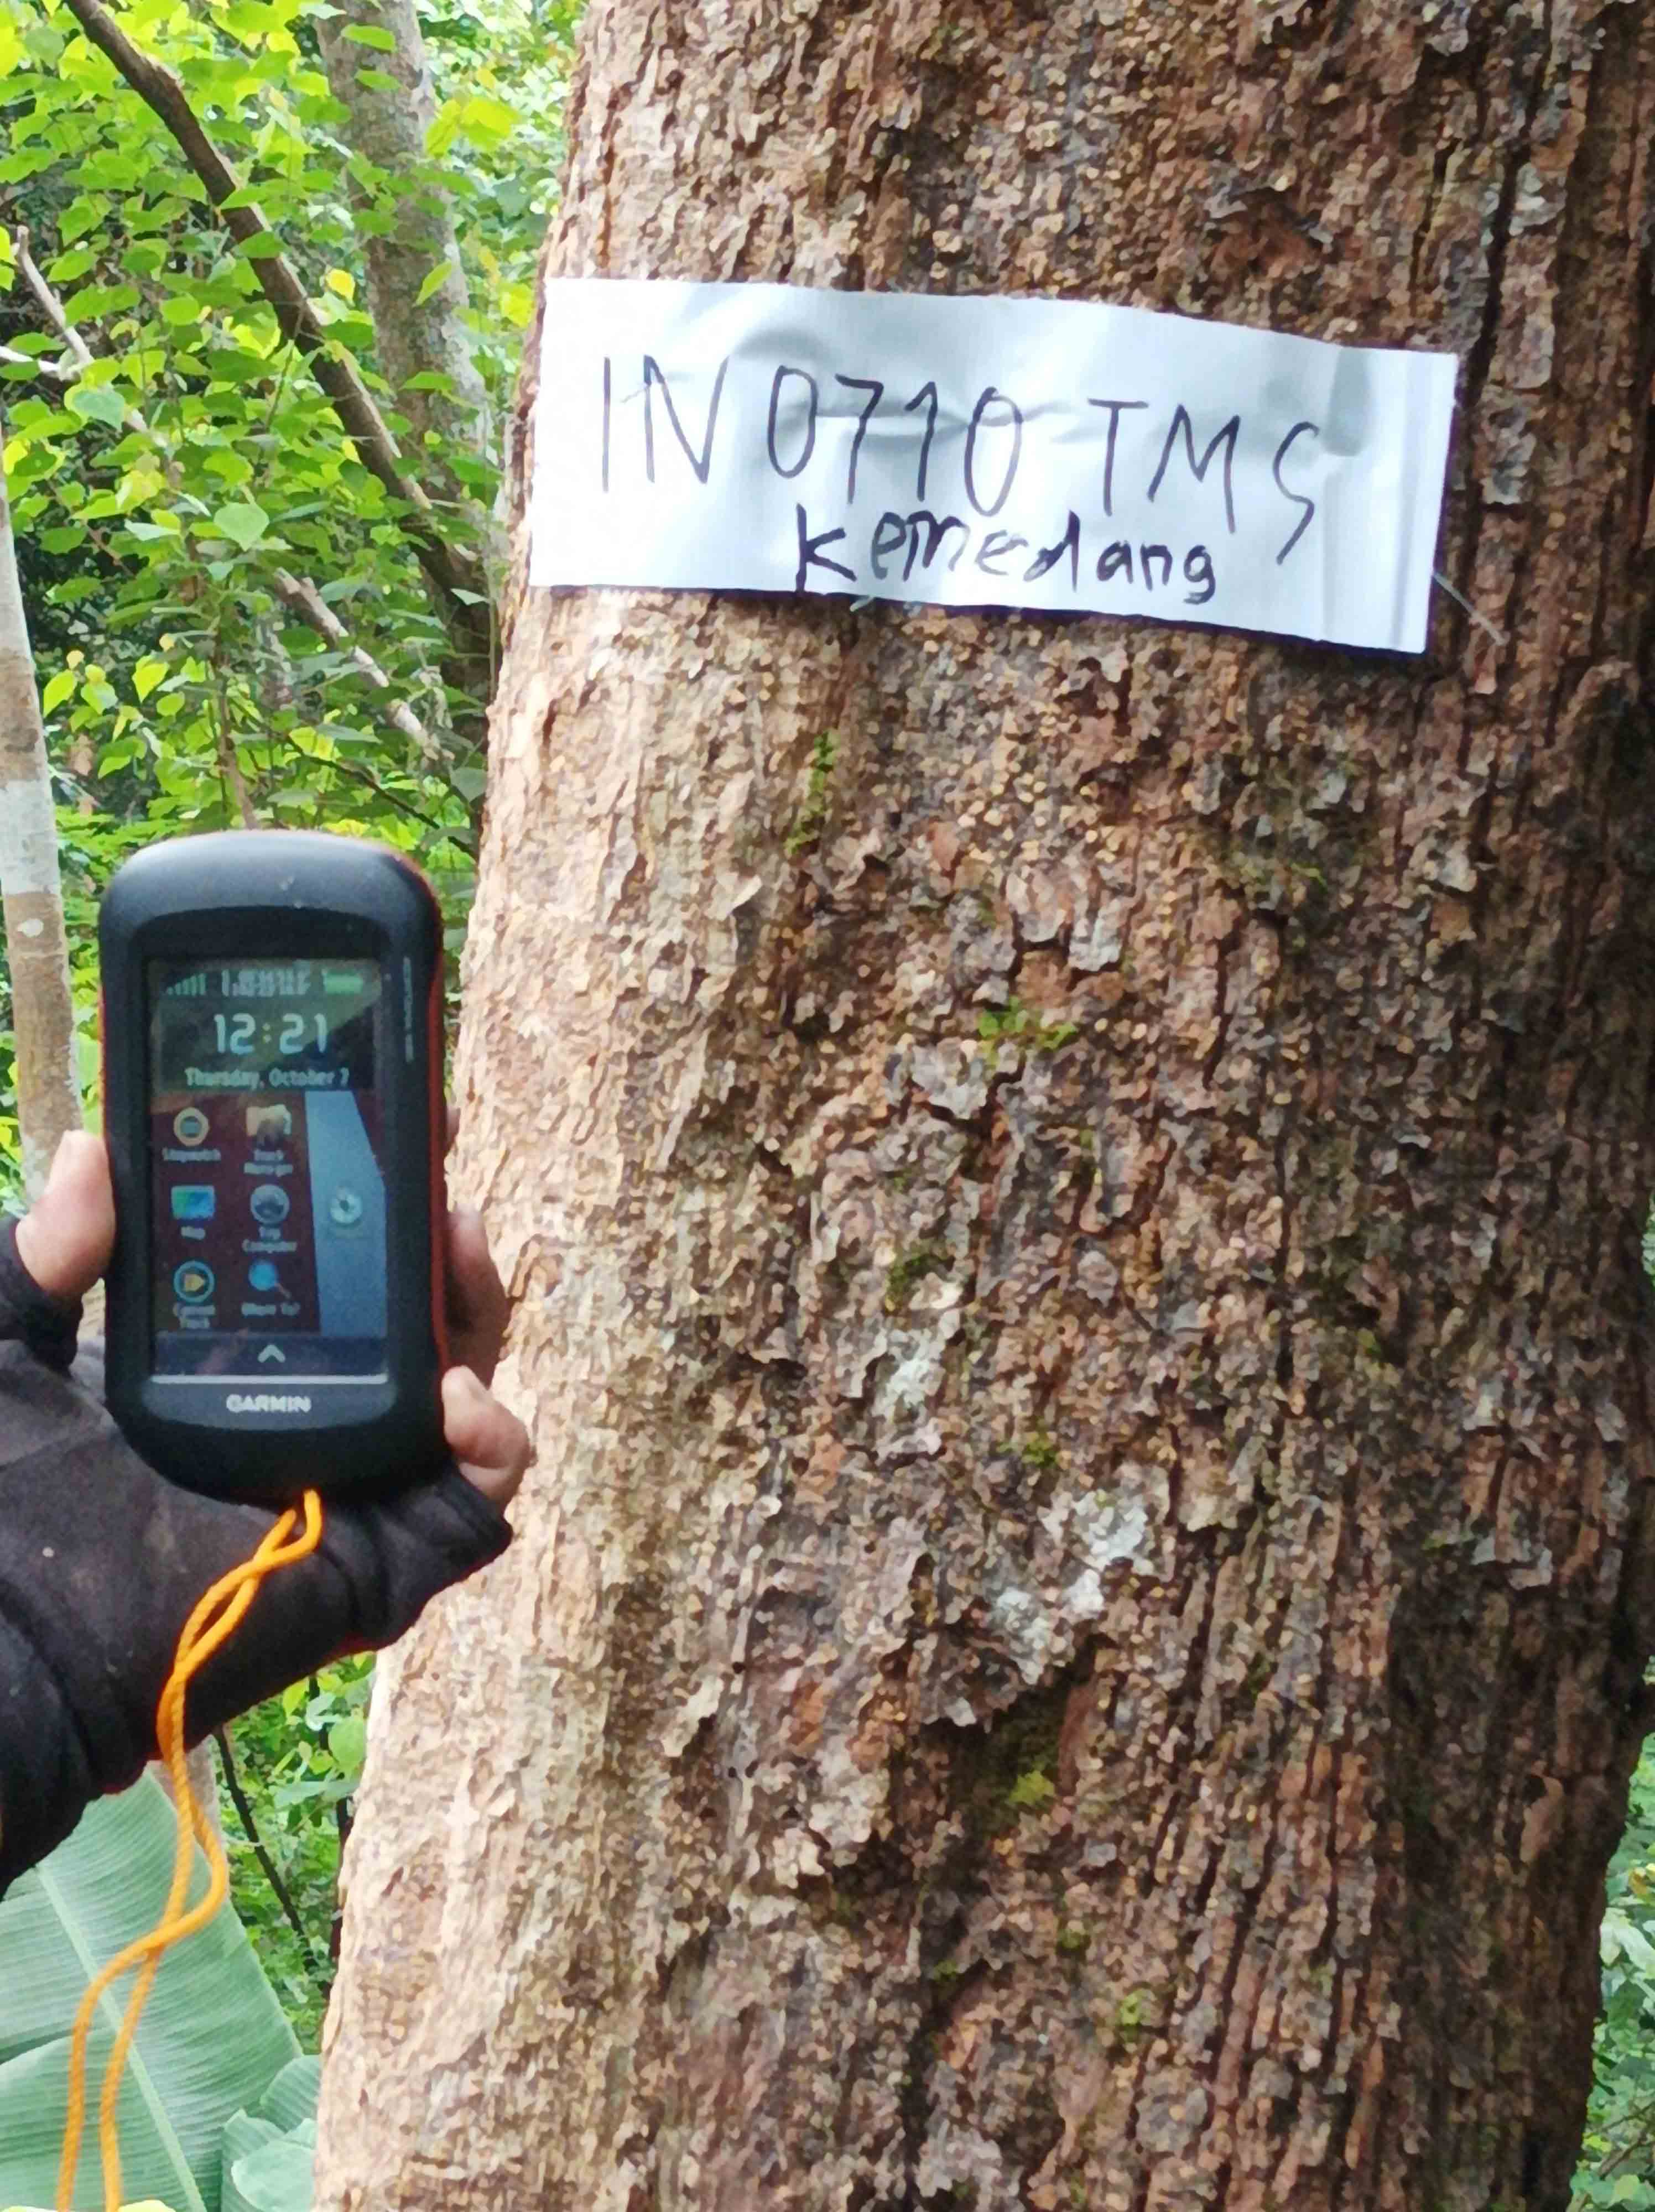 IN 0710 TMS
Kemedang
12:21
Thursday, October 7
Stopwatch
Track Manager
Map
Trip Computer
Current Track
Where To?
GARMIN